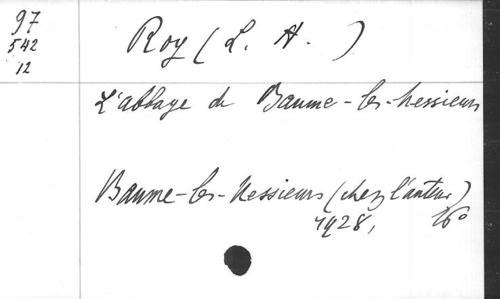 97
542
12
Roy (L. A. )
L'abbaye de Baume-les-Messieurs
Baume-les-Messieurs (chez l'auteur)
1928, 16°